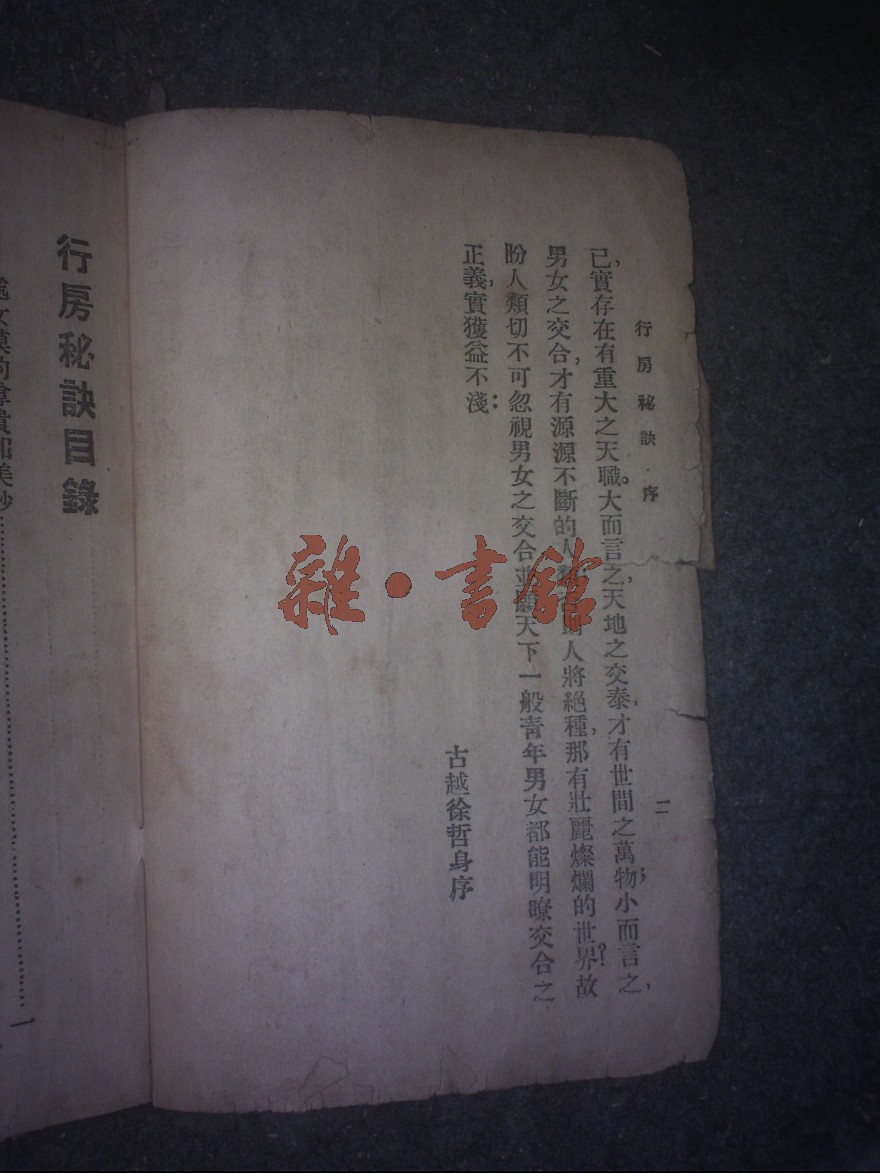 行房秘訣 序
二
已,實存在有重大之天職。大而言之,天地之交泰,才有世間之萬物;小而言之,
男女之交合,才有源源不斷的人類,否則人將絕種,那有壯麗燦爛的世界?故
盼人類切不可忽視男女之交合並願天下一般青年男女都能明瞭交合之
正義,實獲益不淺:
古越徐哲身序
行房秘訣目錄
處女莫的尊貴和美妙……………一
雜·書館